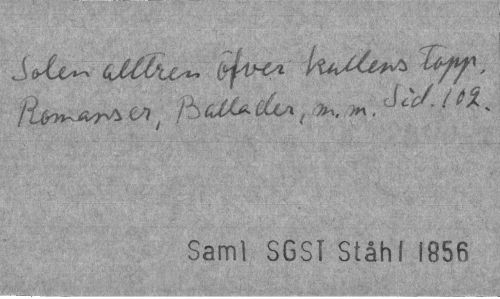 Solen alltren öfver kullens topp.
Romanser, Ballader, m.m. Sid. 102.
Saml SGST Ståhl 1856